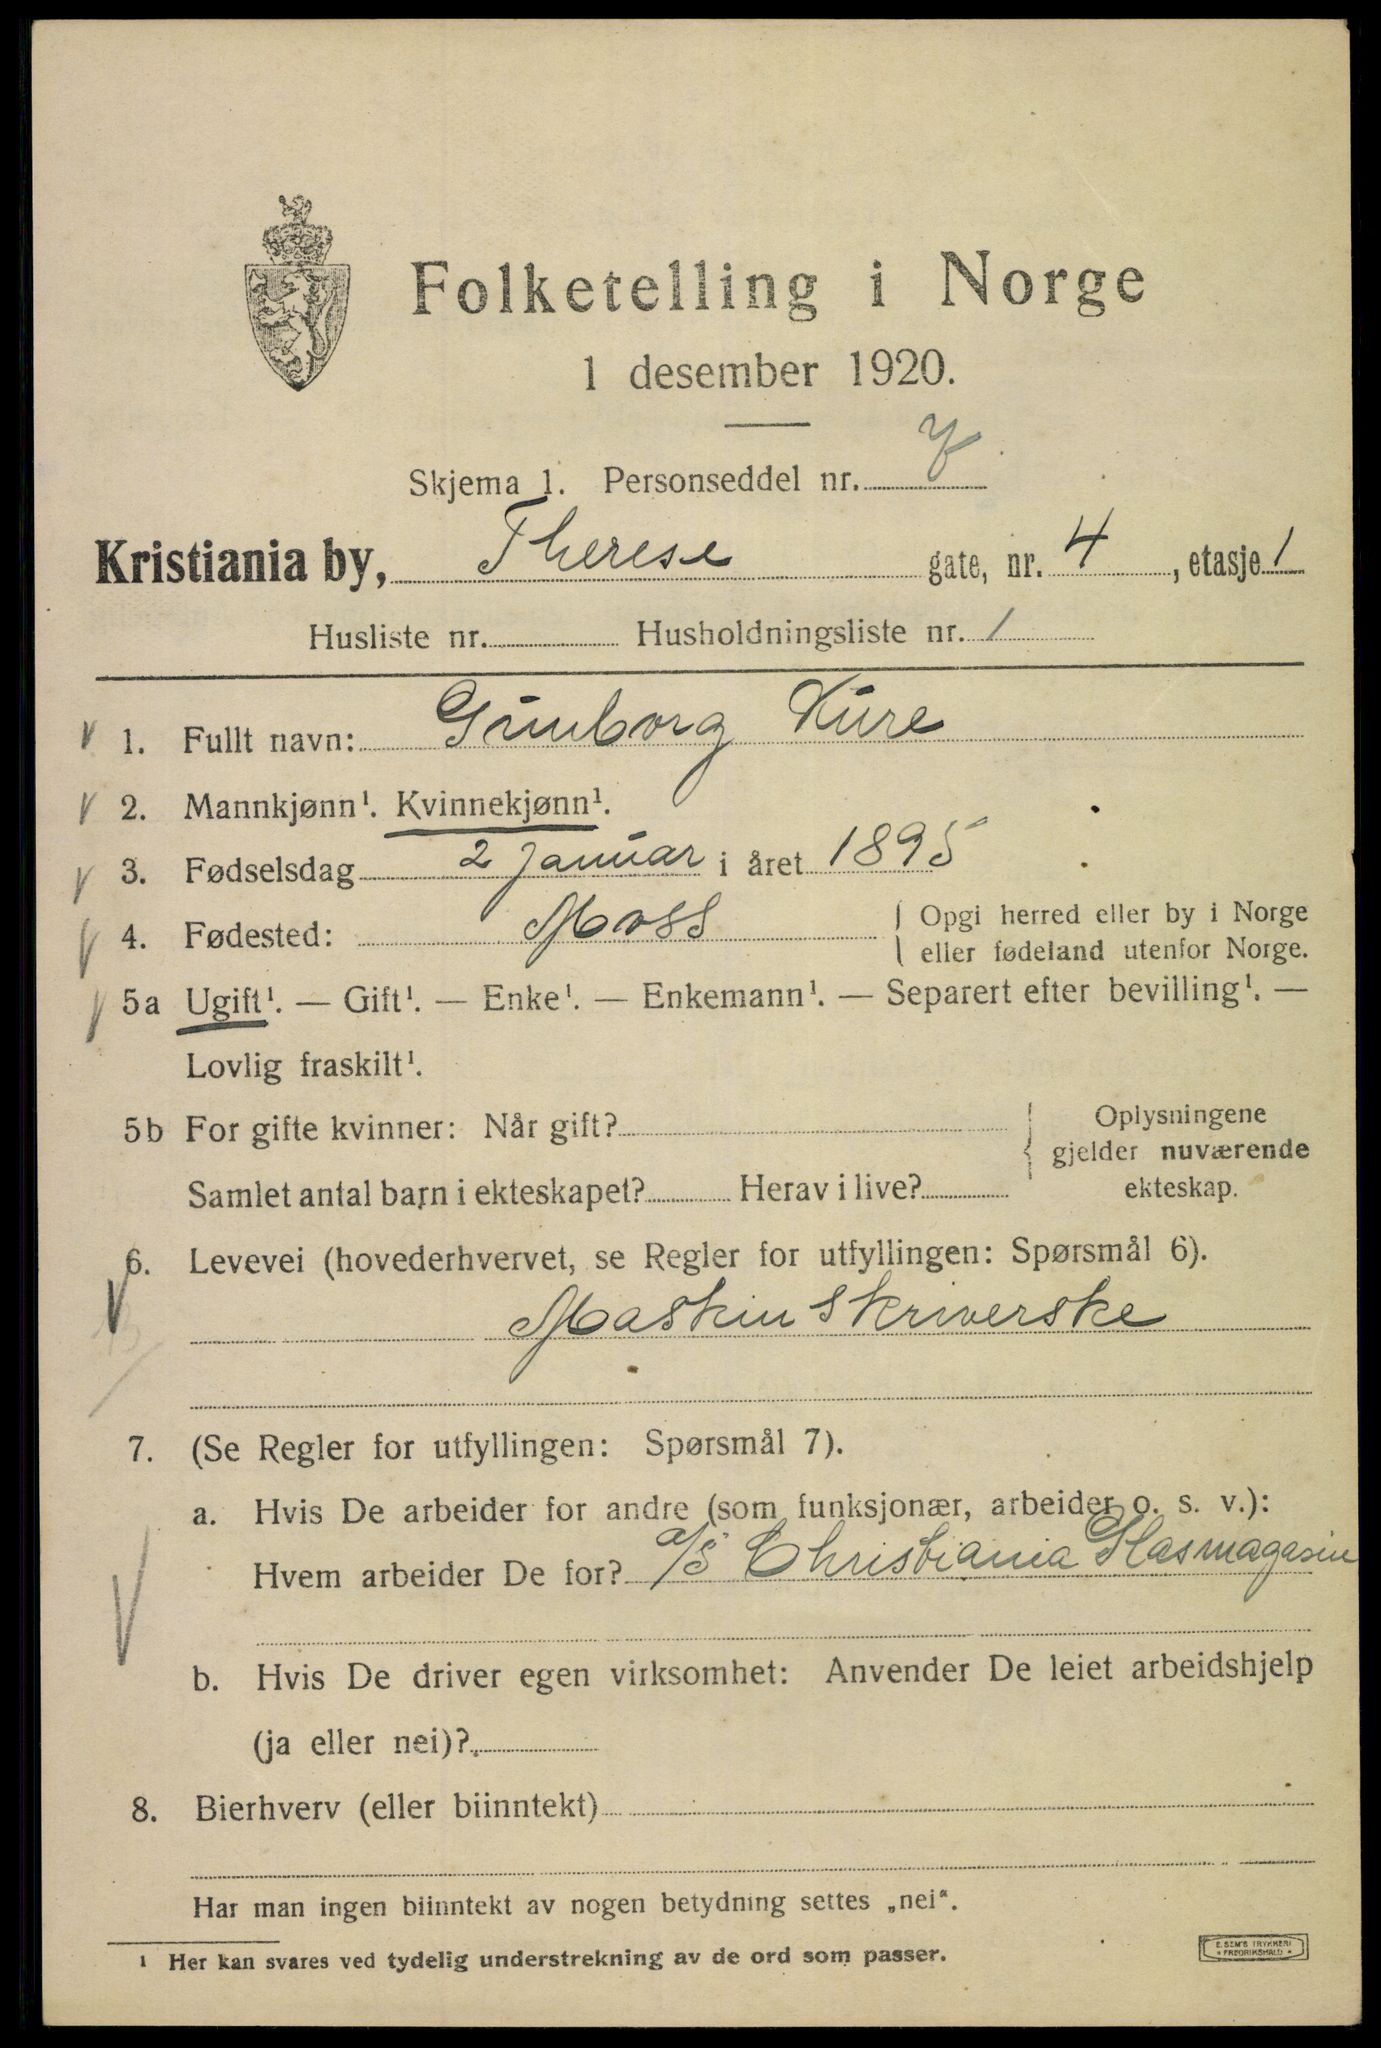 Folketelling i Norge
1 desember 1920.
Skjema 1. Personseddel nr. 7
Kristiania by, Therese gate, nr. 4, etasje 1
Husliste nr. Husholdningsliste nr. 1
1. Fullt navn: Gunborg Kure
2. Mannkjønn¹. Kvinnekjønn¹.
3. Fødselsdag 2 januar i året 1895
4. Fødested: Moss
Opgi herred eller by i Norge
eller fødeland utenfor Norge.
5a Ugift¹. — Gift¹. — Enke¹. — Enkemann¹. — Separert efter bevilling¹. —
Lovlig fraskilt¹.
5b For gifte kvinner: Når gift?
Samlet antal barn i ekteskapet? Herav i live?
Oplysningene
gjelder nuværende
ekteskap.
6. Levevei (hovederhvervet, se Regler for utfyllingen: Spørsmål 6).
Maskinskriverske
7. (Se Regler for utfyllingen: Spørsmål 7).
a. Hvis De arbeider for andre (som funksjonær, arbeider o. s. v.):
Hvem arbeider De for? a/s Christiania Glasmagasin
b. Hvis De driver egen virksomhet: Anvender De leiet arbeidshjelp
(ja eller nei)?
8. Bierhverv (eller biinntekt)
Har man ingen biinntekt av nogen betydning settes „nei“.
¹ Her kan svares ved tydelig understrekning av de ord som passer.
E. SEM'S TRYKKERI
* FREDRIKSHALD *